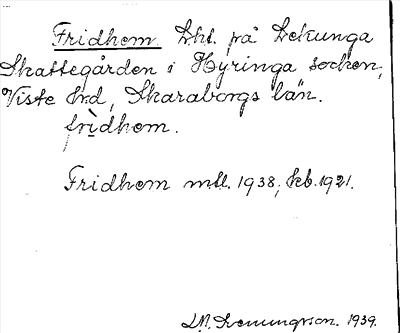 Fridhem. Lht. på Lekunga
Skattegården i Hyringa socken,
Viste hrd, Skaraborgs län.
frìdhem.
Fridhem mtl. 1938, kb. 1921.
1939.